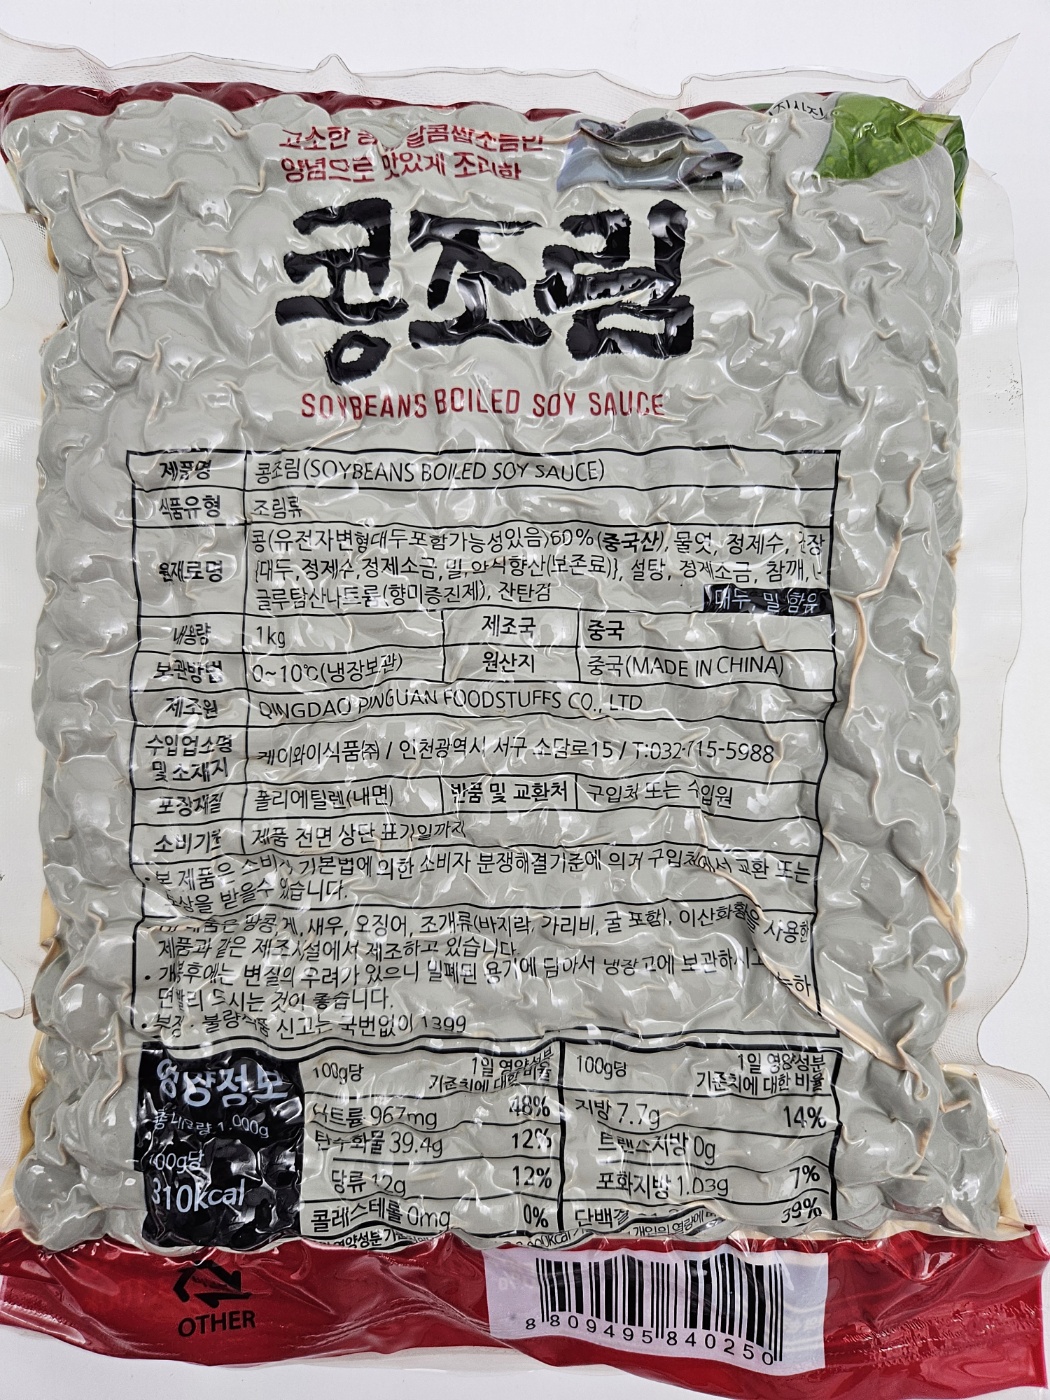 고소한 달콤쌀쏘름한
양념으로 맛있게 조리한
콩조림
SOYBEANS BOILED SOY SAUCE
제품명 콩조림(SOYBEANS BOILED SOY SAUCE)
식품유형 조림류
원재료명 콩(유전자변형대두포함가능성있음)60%(중국산), 물엿, 정제수, 간장
{대두,정제수,정제소금,밀,안식향산(보존료)}, 설탕, 정제소금, 참깨,
글루탐산나트륨(향미증진제), 잔탄검
대두, 밀 함유
내용량 1kg 제조국 중국
보관방법 0~10℃(냉장보관) 원산지 중국(MADE IN CHINA)
제조원 QINGDAO PINGUAN FOODSTUFFS CO., LTD
수입업소명 및 소재지 케이와이식품㈜ / 인천광역시 서구 소담로15 / T:032-715-5988
포장재질 폴리에틸렌(내면) 반품 및 교환처 구입처 또는 수입원
소비기한 제품 전면 상단 표기일까지
• 본 제품은 소비자 기본법에 의한 소비자 분쟁해결기준에 의거 구입처에서 교환 또는
보상을 받을수 있습니다.
제품은 땅콩,게,새우, 오징어, 조개류(바지락, 가리비, 굴 포함), 이산화황을 사용한
제품과 같은 제조시설에서 제조하고 있습니다.
• 개봉후에는 변질의 우려가 있으니 밀폐된 용기에 담아서 냉장고에 보관하시고
면빨리 드시는 것이 좋습니다.
• 부정 · 불량식품 신고는 국번없이 1399
영양정보
총 내용량 1,000g
100g당
310kcal
100g당 1일 영양성분
기준치에 대한 비율
나트륨 967mg 48%
탄수화물 39.4g 12%
당류 12g 12%
콜레스테롤 0mg 0%
100g당 1일 영양성분
기준치에 대한 비율
지방 7.7g 14%
트랜스지방 0g
포화지방 1.03g 7%
단백질 39%
OTHER
8 809495 840250